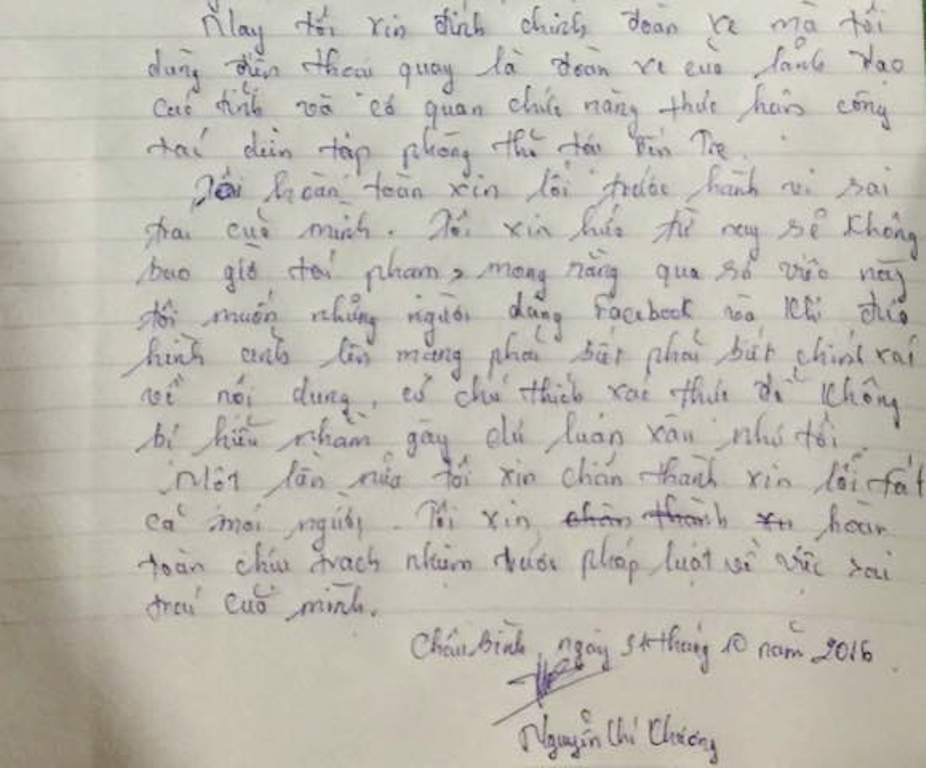 Nay tôi xin đính chính đoàn xe mà tôi
dùng điện thoại quay là đoàn xe của lãnh đạo
các tỉnh và cơ quan chức năng thực hành công
tác diễn tập phòng thủ tại Bến Tre.
Tôi hoàn toàn xin lỗi trước hành vi sai
trái của mình. Tôi xin hứa từ nay sẽ không
bao giờ tái phạm, mong rằng qua sự việc này
tôi muốn những người dùng Facebook và khi đưa
hình ảnh lên mạng phải biết chính xác
về nội dung, có chú thích xác thực để không
bị hiểu nhầm gây dư luận xấu như tôi
Một lần nữa tôi xin chân thành xin lỗi tất
cả mọi người. Tôi xin chân thành xin hoàn
toàn chịu trách nhiệm trước pháp luật về việc sai
trái của mình.
Châu Bình, ngày 31 tháng 10 năm 2016
Nguyễn Chí Chương